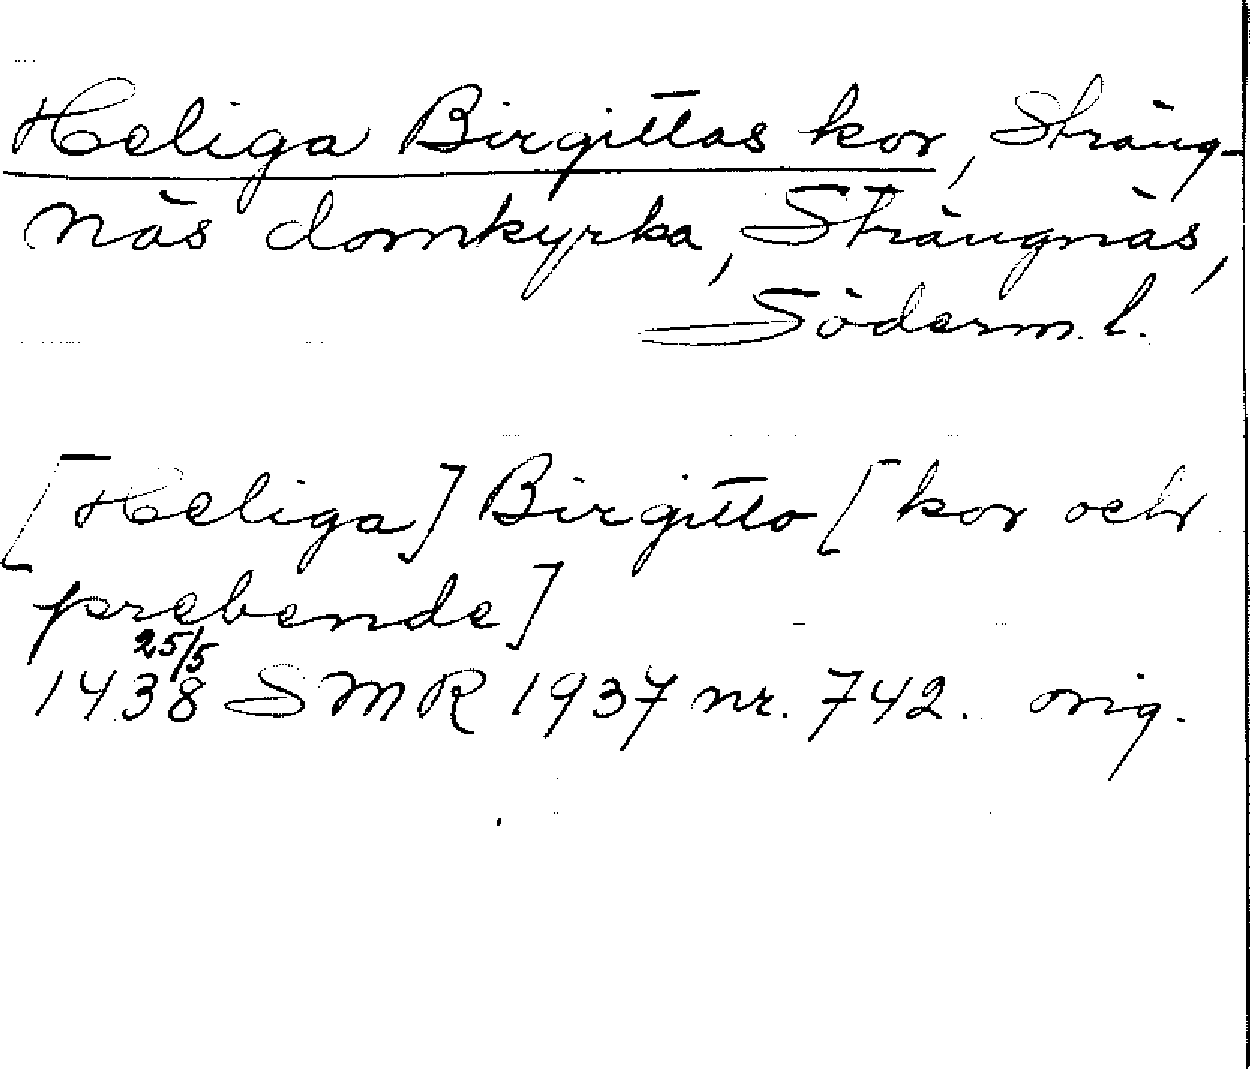 Heliga Birgittas kor, Sträng-
näs domkyrka, Strängnäs,
Söderm. l.
[Heliga] Birgitto [kor och
prebende]
25/5
1438 SMR 1937 nr. 742. orig.